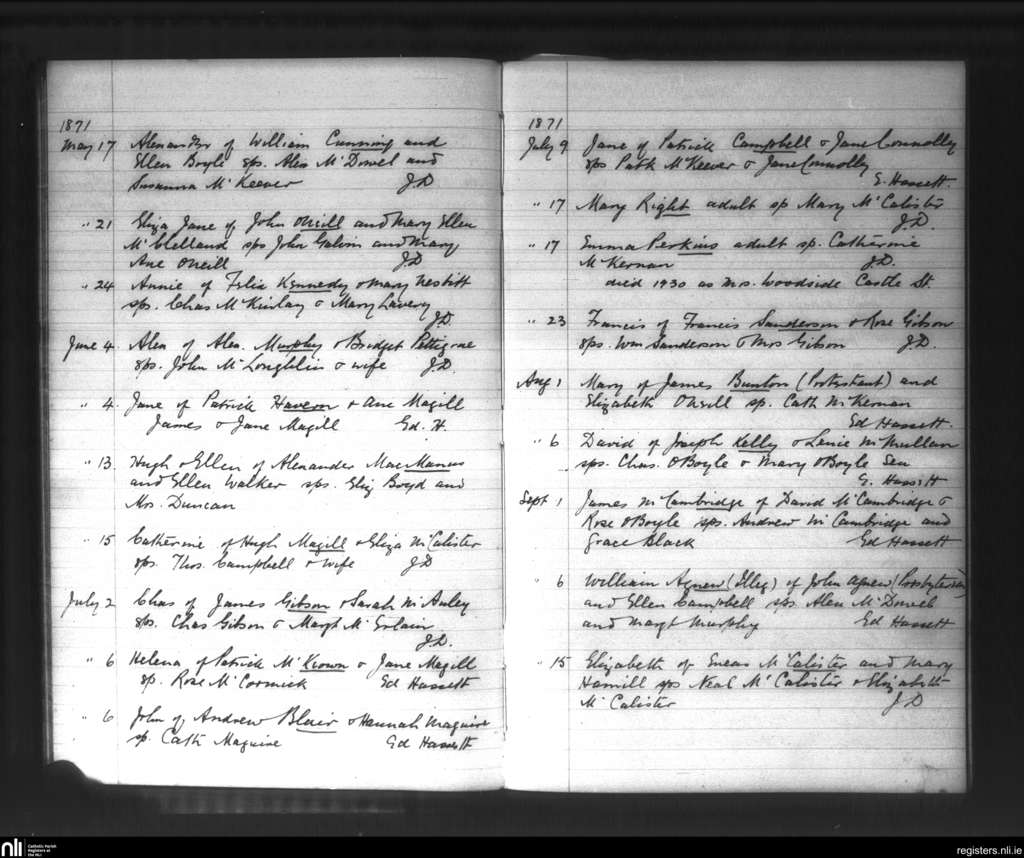 1871
May 17 Alexander of William Cunning and
Ellen Boyle sps. Alex McDowel and
Susanna McKeever J.D
" 21 Eliza Jane of John ONeill and Mary Ellen
McClelland sps John Galvin and Mary
Ane ONeill J.D
" 24 Annie of Felix Kennedy & Mary Nesbitt
sps. Chas McKinlay & Mary Lavery
J.D.
June 4. Alex of Alex. Murphy & Bridget Pettigrae
sps. John McLoughlin & wife J.D.
" 4. Jane of Patrick Haveron & Ane Magill
James & Jane Magill Ed. H.
" 13. Hugh & Ellen of Alexander MacManus
and Ellen Walker sps. Eliz Boyd and
Mrs. Duncan
" 15 Catherine of Hugh Magill & Eliza McCalister
sps. Thos. Campbell & wife J.D
July 2 Chas of James Gibson & Sarah McAuley
sps. Chas Gibson & Margt McErlain
J.D.
" 6 Helena of Patrick McKeown & Jane Magill
sp. Rose McCormick Ed Hassett
" 6 John of Andrew Blair & Hannah Maguire
sp. Cath Maguire Ed Hassett
1871
July 9 Jane of Patrick Campbell & Jane Connolly
sps Patk McKeever & Jane Connolly
E. Hassett.
" 17 Mary Right adult sp Mary McCalister
J.D.
" 17 Emma Perkins adult sp. Catherine
McKernan J.D.
died 1930 as Mrs. Woodside Castle St.
" 23 Francis of Francis Sanderson & Rose Gibson
sps. Wm Sanderson & Mrs Gibson J.D.
Aug 1 Mary of James Bunton (Protestant) and
Elizabeth ONeill sp. Cath McKernan
Ed Hassett.
" 6 David of Joseph Kelly & Lenie McMullan
sps. Chas. OBoyle & Mary OBoyle Sen
E. Hassett
Sept 1 James McCambridge of David McCambridge &
Rose OBoyle sps. Andrew McCambridge and
Grace Black Ed Hassett
" 6 William Agnew (Illeg) of John Agnew (Presbyterian)
and Ellen Campbell sps. Alex McDowel
and Margt Murphy Ed Hassett
" 15 Elizabeth of Eneas McCalister and Mary
Hamill sps Neal McCalister & Elizabeth
McCalister J.D
nli Catholic Parish
Registers at
the NLI
registers.nli.ie